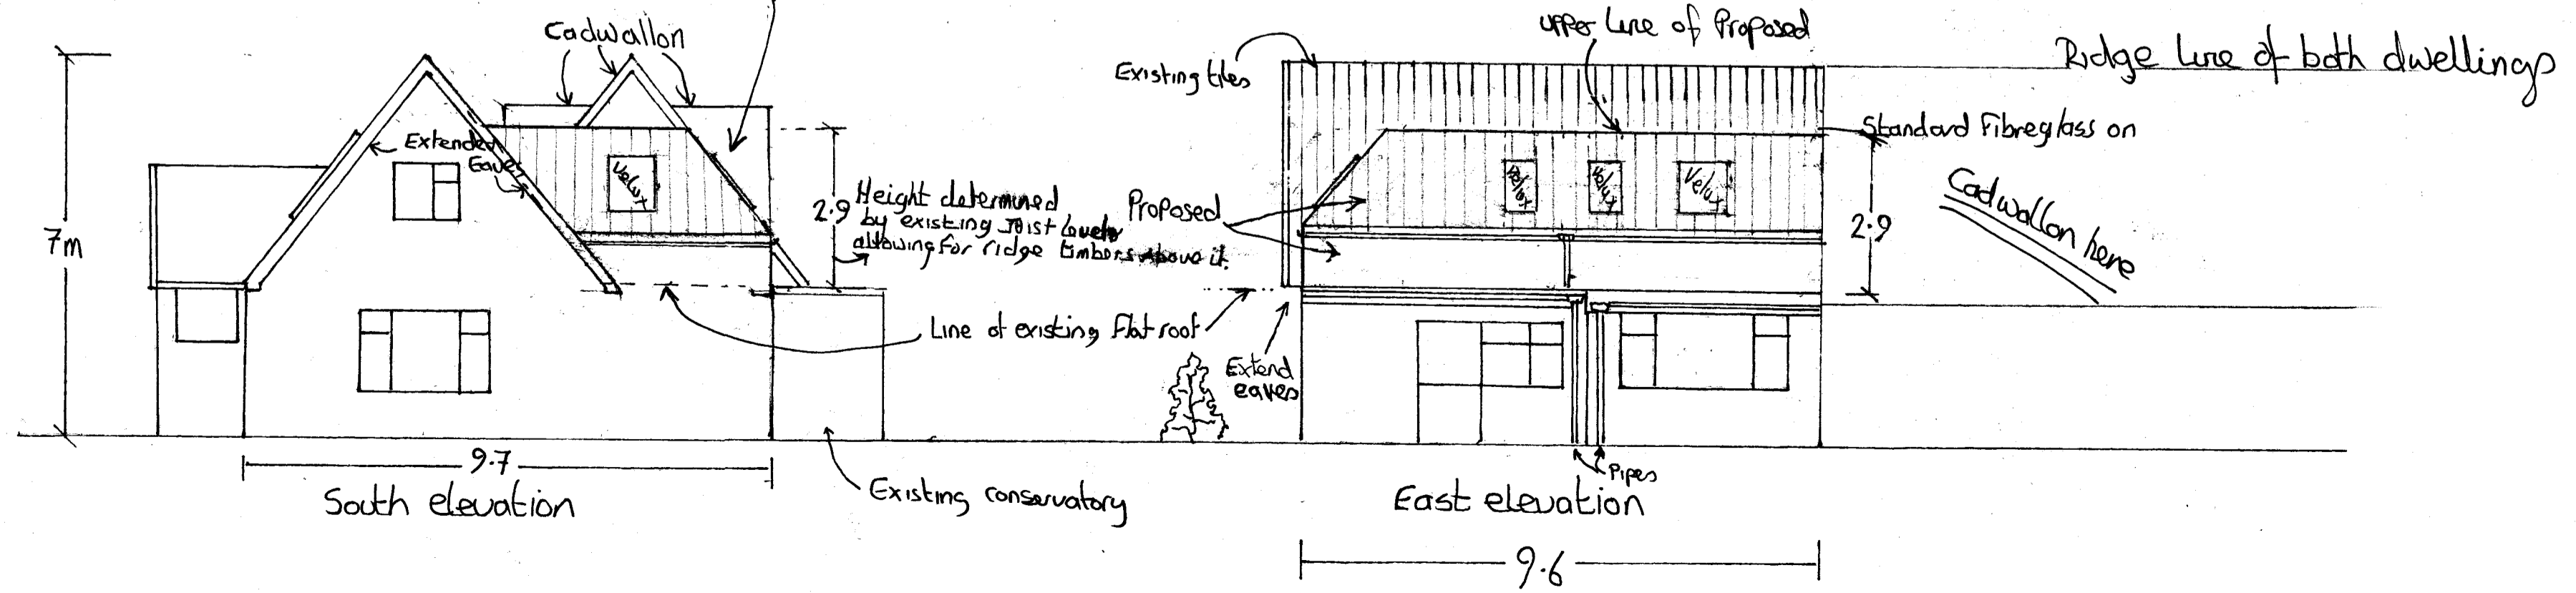 Cadwallon
Extended
Eaves
Velux
7m
2.9
Height determined
by existing joist levels
allowing for ridge timbers above it.
Line of existing flat roof
9.7
South elevation
Existing conservatory
Existing tiles
upper line of Proposed
Ridge line of both dwellings
Standard Fibreglass on
Proposed
Velux
Velux
Velux
2.9
Cadwallon here
Extend
eaves
Pipes
East elevation
9.6